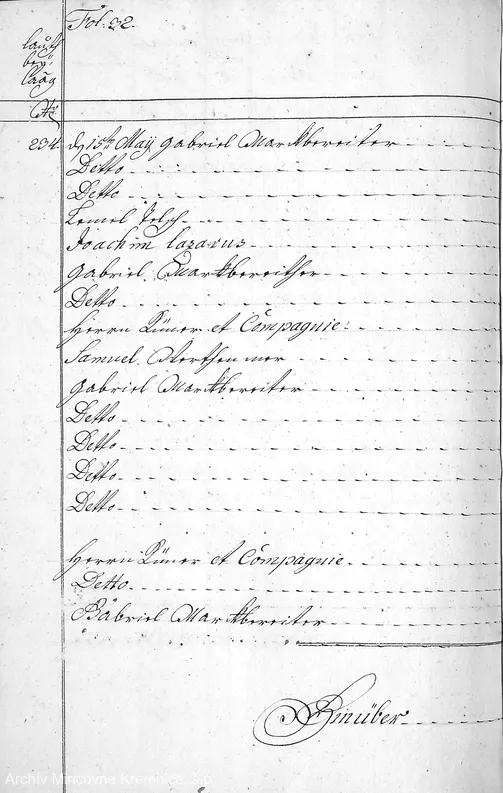 Fol. 32.
lauth
bey-
laag
No
234. dg 15th Maÿ Gabriel Marckbereiter
Detto
Detto
Lemel
Joachim Lazarus
Gabriel Marckbereither
Detto
Herrn Küner et Compagnie
Samuel
Gabriel Marckbereiter
Detto
Detto
Detto
Detto
Herrn Küner et Compagnie
Detto
Gabriel Marckbereiter
Hinüber
Archív Mincovne Kremnica, š.p.